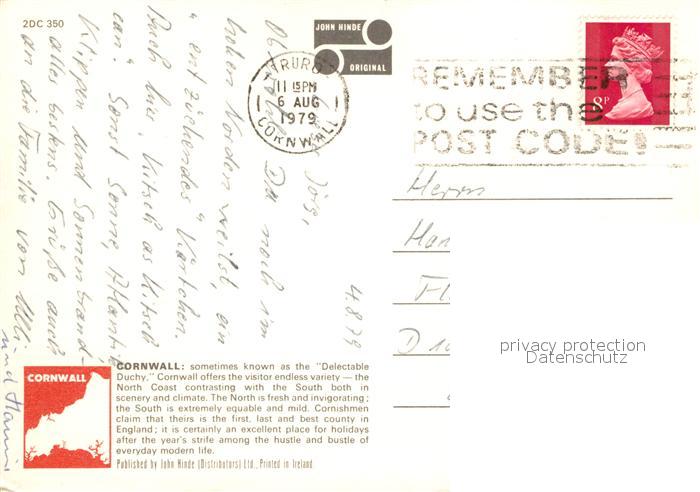 2DC 350
JOHN HINDE
ORIGINAL
TRURO
11 15PM
6 AUG
1979
CORNWALL
REMEMBER
to use the
POST CODE!
8P
4.8.79
Jörg,
Ob Du noch im
hohen Norden weilst, ein
"entzückendes" Kärtchen.
Auch hier, Kitsch as Kitsch
can. Sonst Sonne, Atlantik
Klippen und Sonnenbrand -
alles bestens. Grüße auch
an die Familie von Ulli
und Hanni
Herrn
Han
Fl
D 10
privacy protection
Datenschutz
CORNWALL
CORNWALL: sometimes known as the "Delectable
Duchy," Cornwall offers the visitor endless variety — the
North Coast contrasting with the South both in
scenery and climate. The North is fresh and invigorating;
the South is extremely equable and mild. Cornishmen
claim that theirs is the first, last and best county in
England; it is certainly an excellent place for holidays
after the year's strife among the hustle and bustle of
everyday modern life.
Published by John Hinde (Distributors) Ltd., Printed in Ireland.